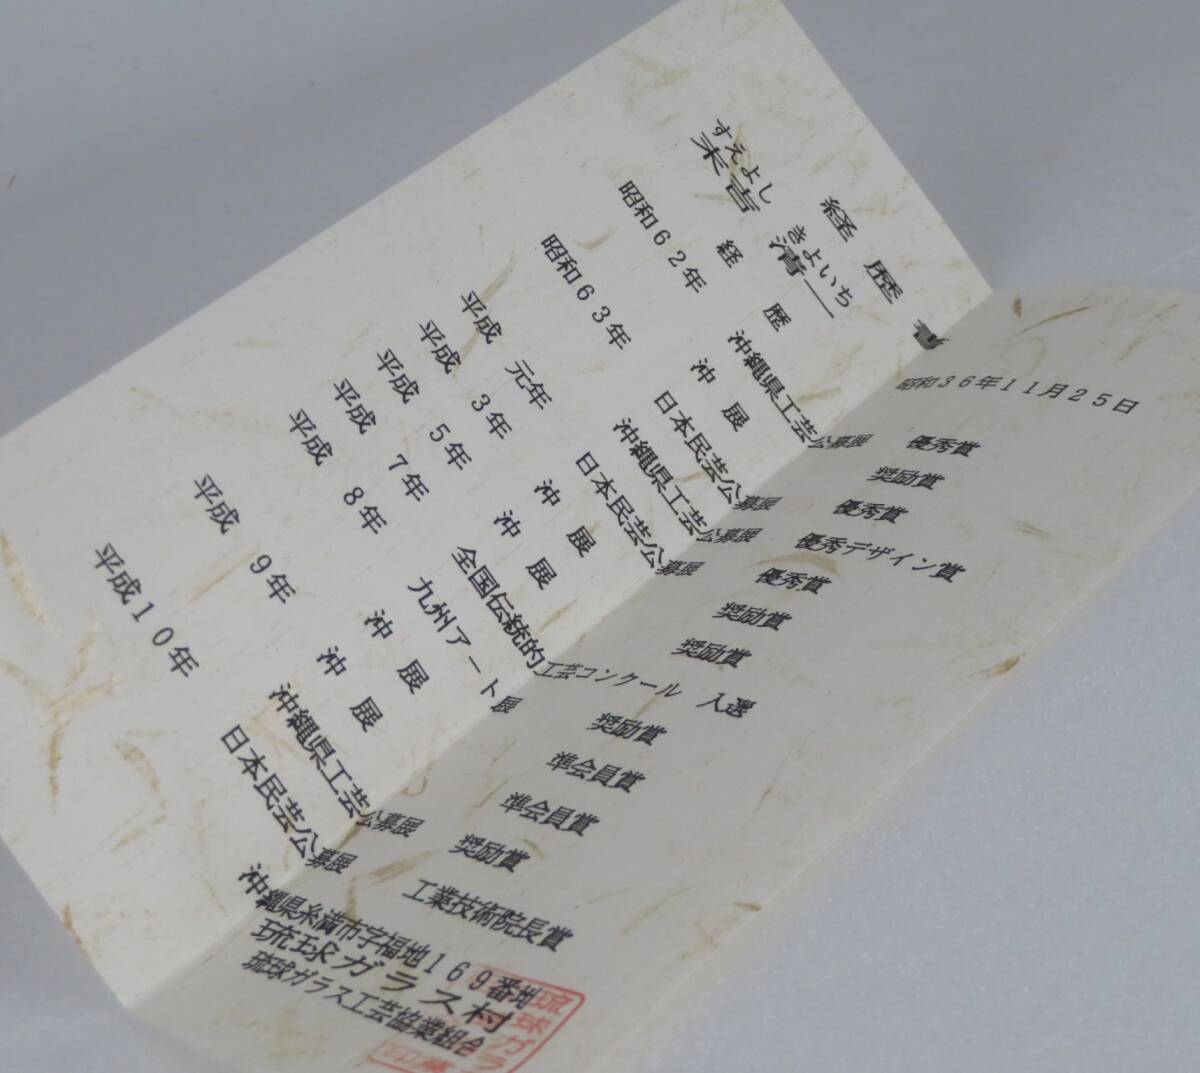 経歴
すえよし きよいち
末吉 清一 昭和36年11月25日
経歴
昭和62年 沖縄県工芸公募展 優秀賞
沖展 奨励賞
昭和63年 日本民芸公募展 優秀賞
沖縄県工芸公募展 優秀デザイン賞
平成 元年 日本民芸公募展 優秀賞
平成 3年 沖展 奨励賞
平成 5年 沖展 奨励賞
平成 7年 全国伝統的工芸コンクール 入選
平成 8年 九州アート展 奨励賞
沖展 準会員賞
平成 9年 沖展 準会員賞
沖縄県工芸公募展 奨励賞
平成10年 日本民芸公募展 工業技術院長賞
沖縄県糸満市字福地169番地
琉球ガラス村
琉球ガラス工芸協業組合
琉球ガラ